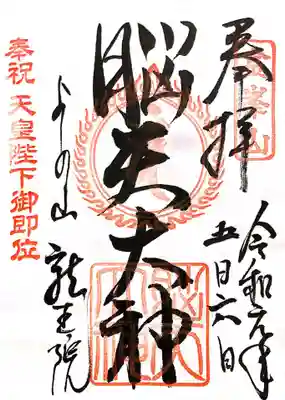 奉拝
金峯山
令和元年
五月六日
脳天大神
よしの山 龍王院
奉祝 天皇陛下御即位